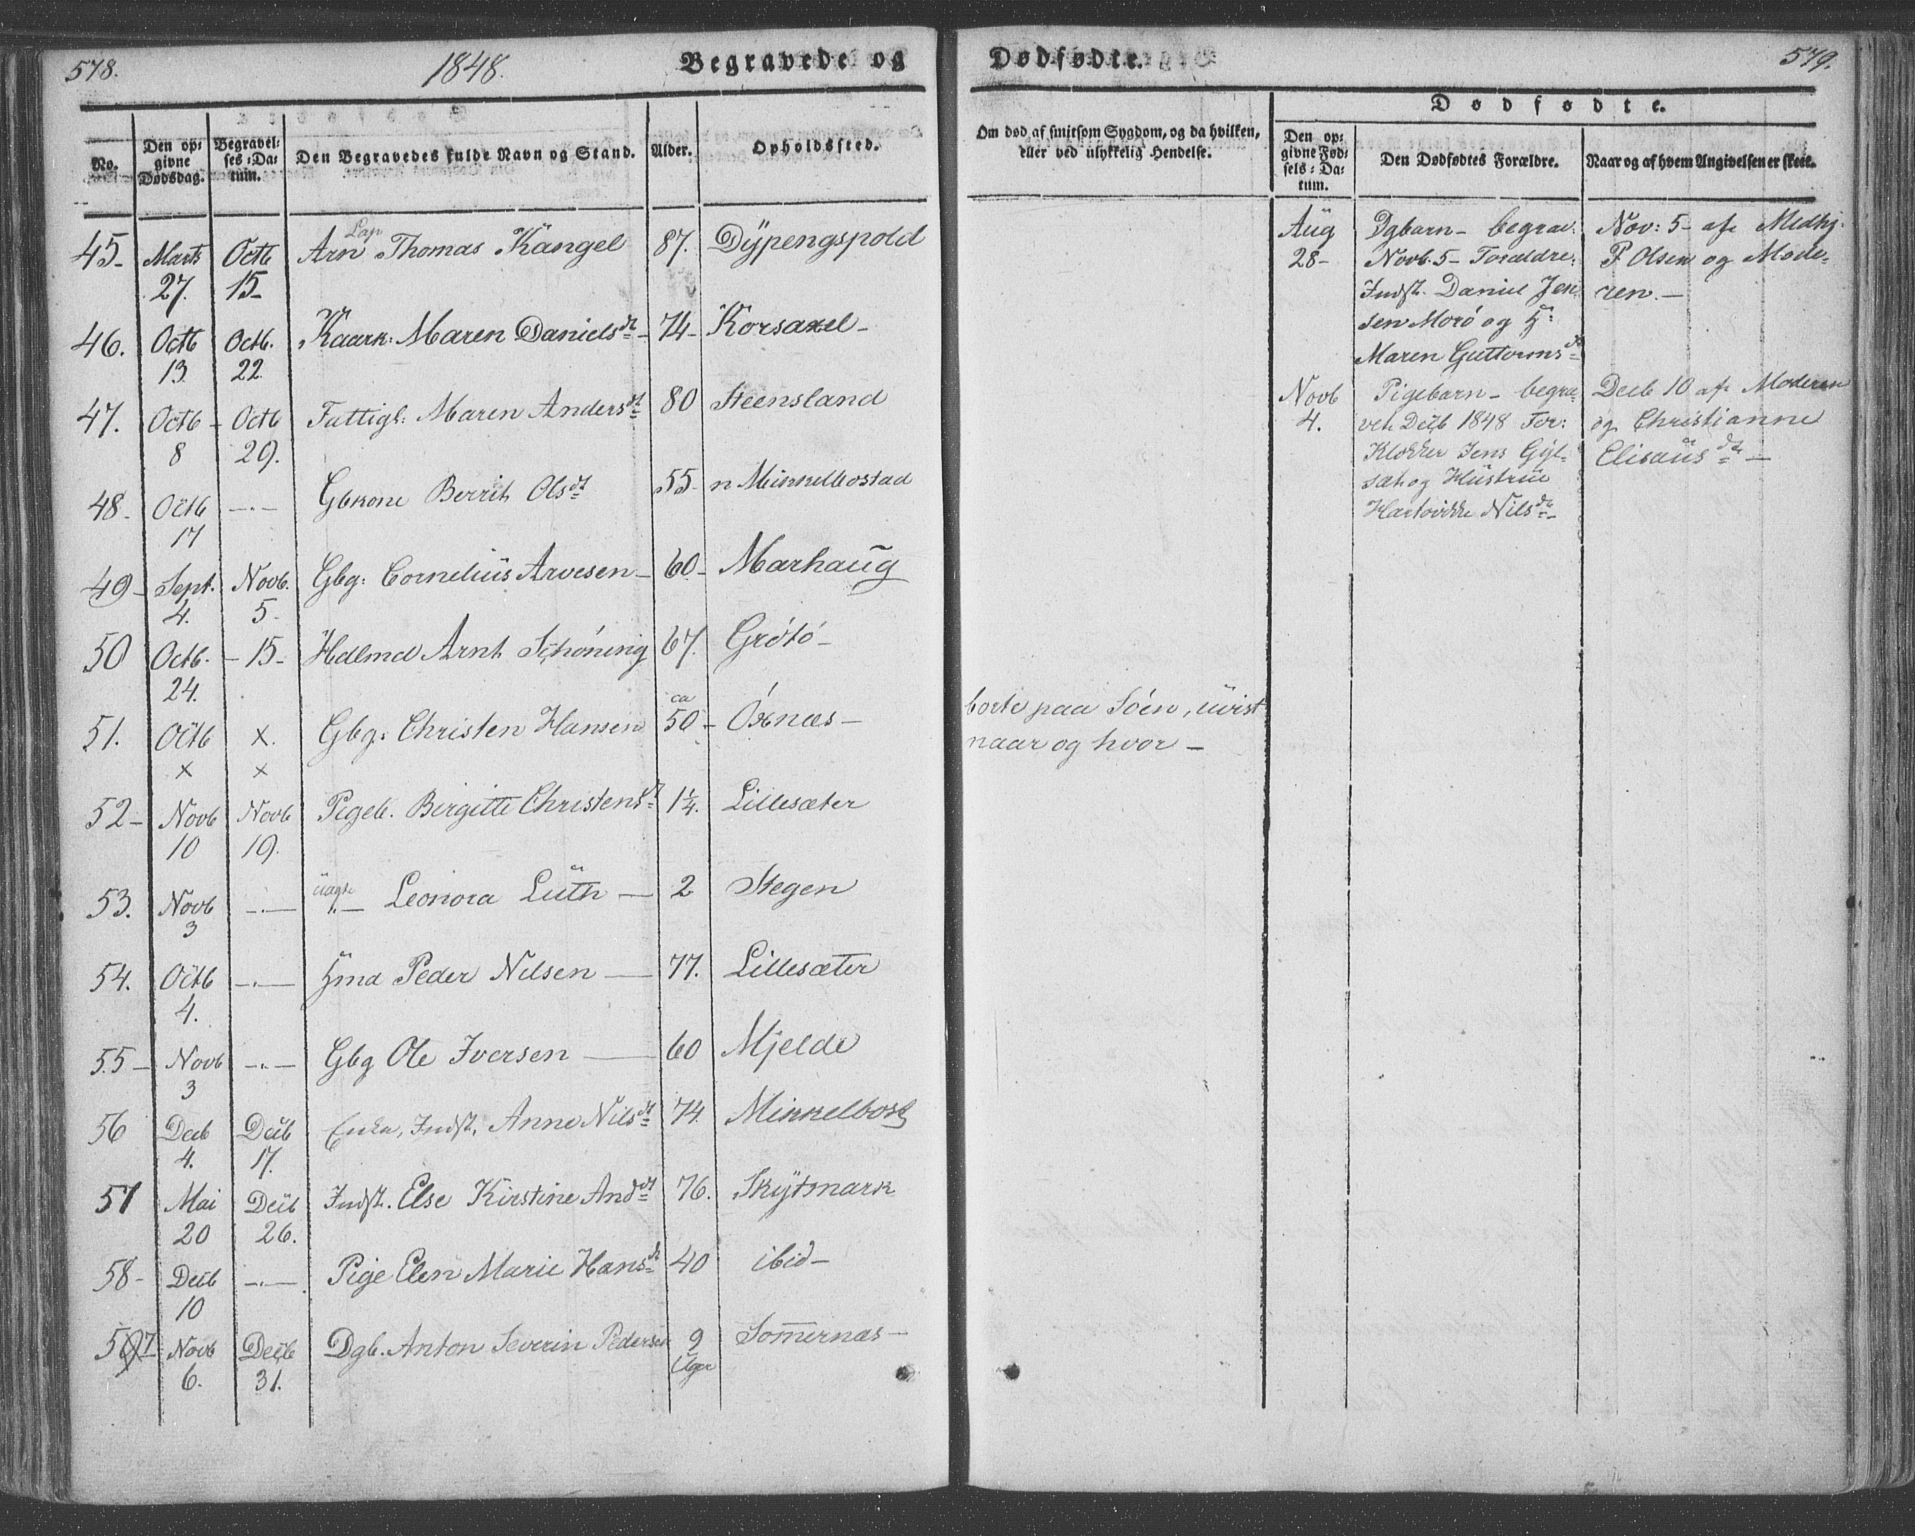 578. 1848. Begravede og
No. Den opgivne Dødsdag. Begravelses-Datum. Den Begravedes fulde Navn og Stand. Alder. Opholdssted.
45- Marts 27. Octb 15- Lap Arn Thomas Kangel 87. Dÿpengspold
46. Octb 13 Octb. 22 Kaark: Maren Danielsdt- 74- Korsaxel-
47. Octb 8 - Octb 29. Fattigl: Maren Andersdt 80 Steensland
48- Octb 17 -.- Gbkone Berrit Olsdt 55- n Minkelbostad
49- Sept. 4. Novb. 5- Gbg: Cornelius Arvesen- 60- Marhaug
50 Octb. 24. - 15- Hdlmd Arnt Schöning 67. Grötö-
51. Octb x x. x Gbg: Christen Hansen ca 50- Öxnæs-
52- Novb 10 Novb 19. Pigeb. Birgitte Christensdt 1¼. Lillesæter
53. Novb 3 -.- Leonora Lüth - 2 Stegen
54. Octb 4. -.- Hmd Peder Nilsen - 77. Lillesæter
55- Novb 3 -.- Gbg Ole Iversen - 60 Mjelde
56 Decb 4. Decb 17. Enke, Indst. Anne Nilsdt 74. Minkelbost
57 Mai 20 Decb 26. Indst. Else Kirstine Anddt 76. Skÿtmark
58- Decb 10 -.- Pige Elen Marie Hansdt 40 ibid-
59 Novb 6. Decb 31. Dgb. Anton Severin Pedersen 9 Uger Somernæs-
Dødfødte. 579.
Om død af smitsom Sygdom, og da hvilken,
eller ved ulykkelig Hendelse.
Dødfødte.
Den opgivne Fødsels-Datum. Den Dødfødtes Forældre. Naar og af hvem Angivelsen er skeet.
borte paa Söen, uvist
naar og hvor-
Aug 28-
Dgbarn- begrav:
Novb. 5- Forældre:
Indst. Daniel Jen
sen Morö og H:
Maren Guttormsdt
Nov: 5- af Medhj.
P Olsen og Mode-
ren.-
Novb 4.
Pigebarn- begra-
vet Decb 1848 For:
Klokker Jens Gÿl-
sæt og Hustrue
Hartvikke Nilsdt-
Decb 10 af Moderen
og Christianne
Elisæusdt-